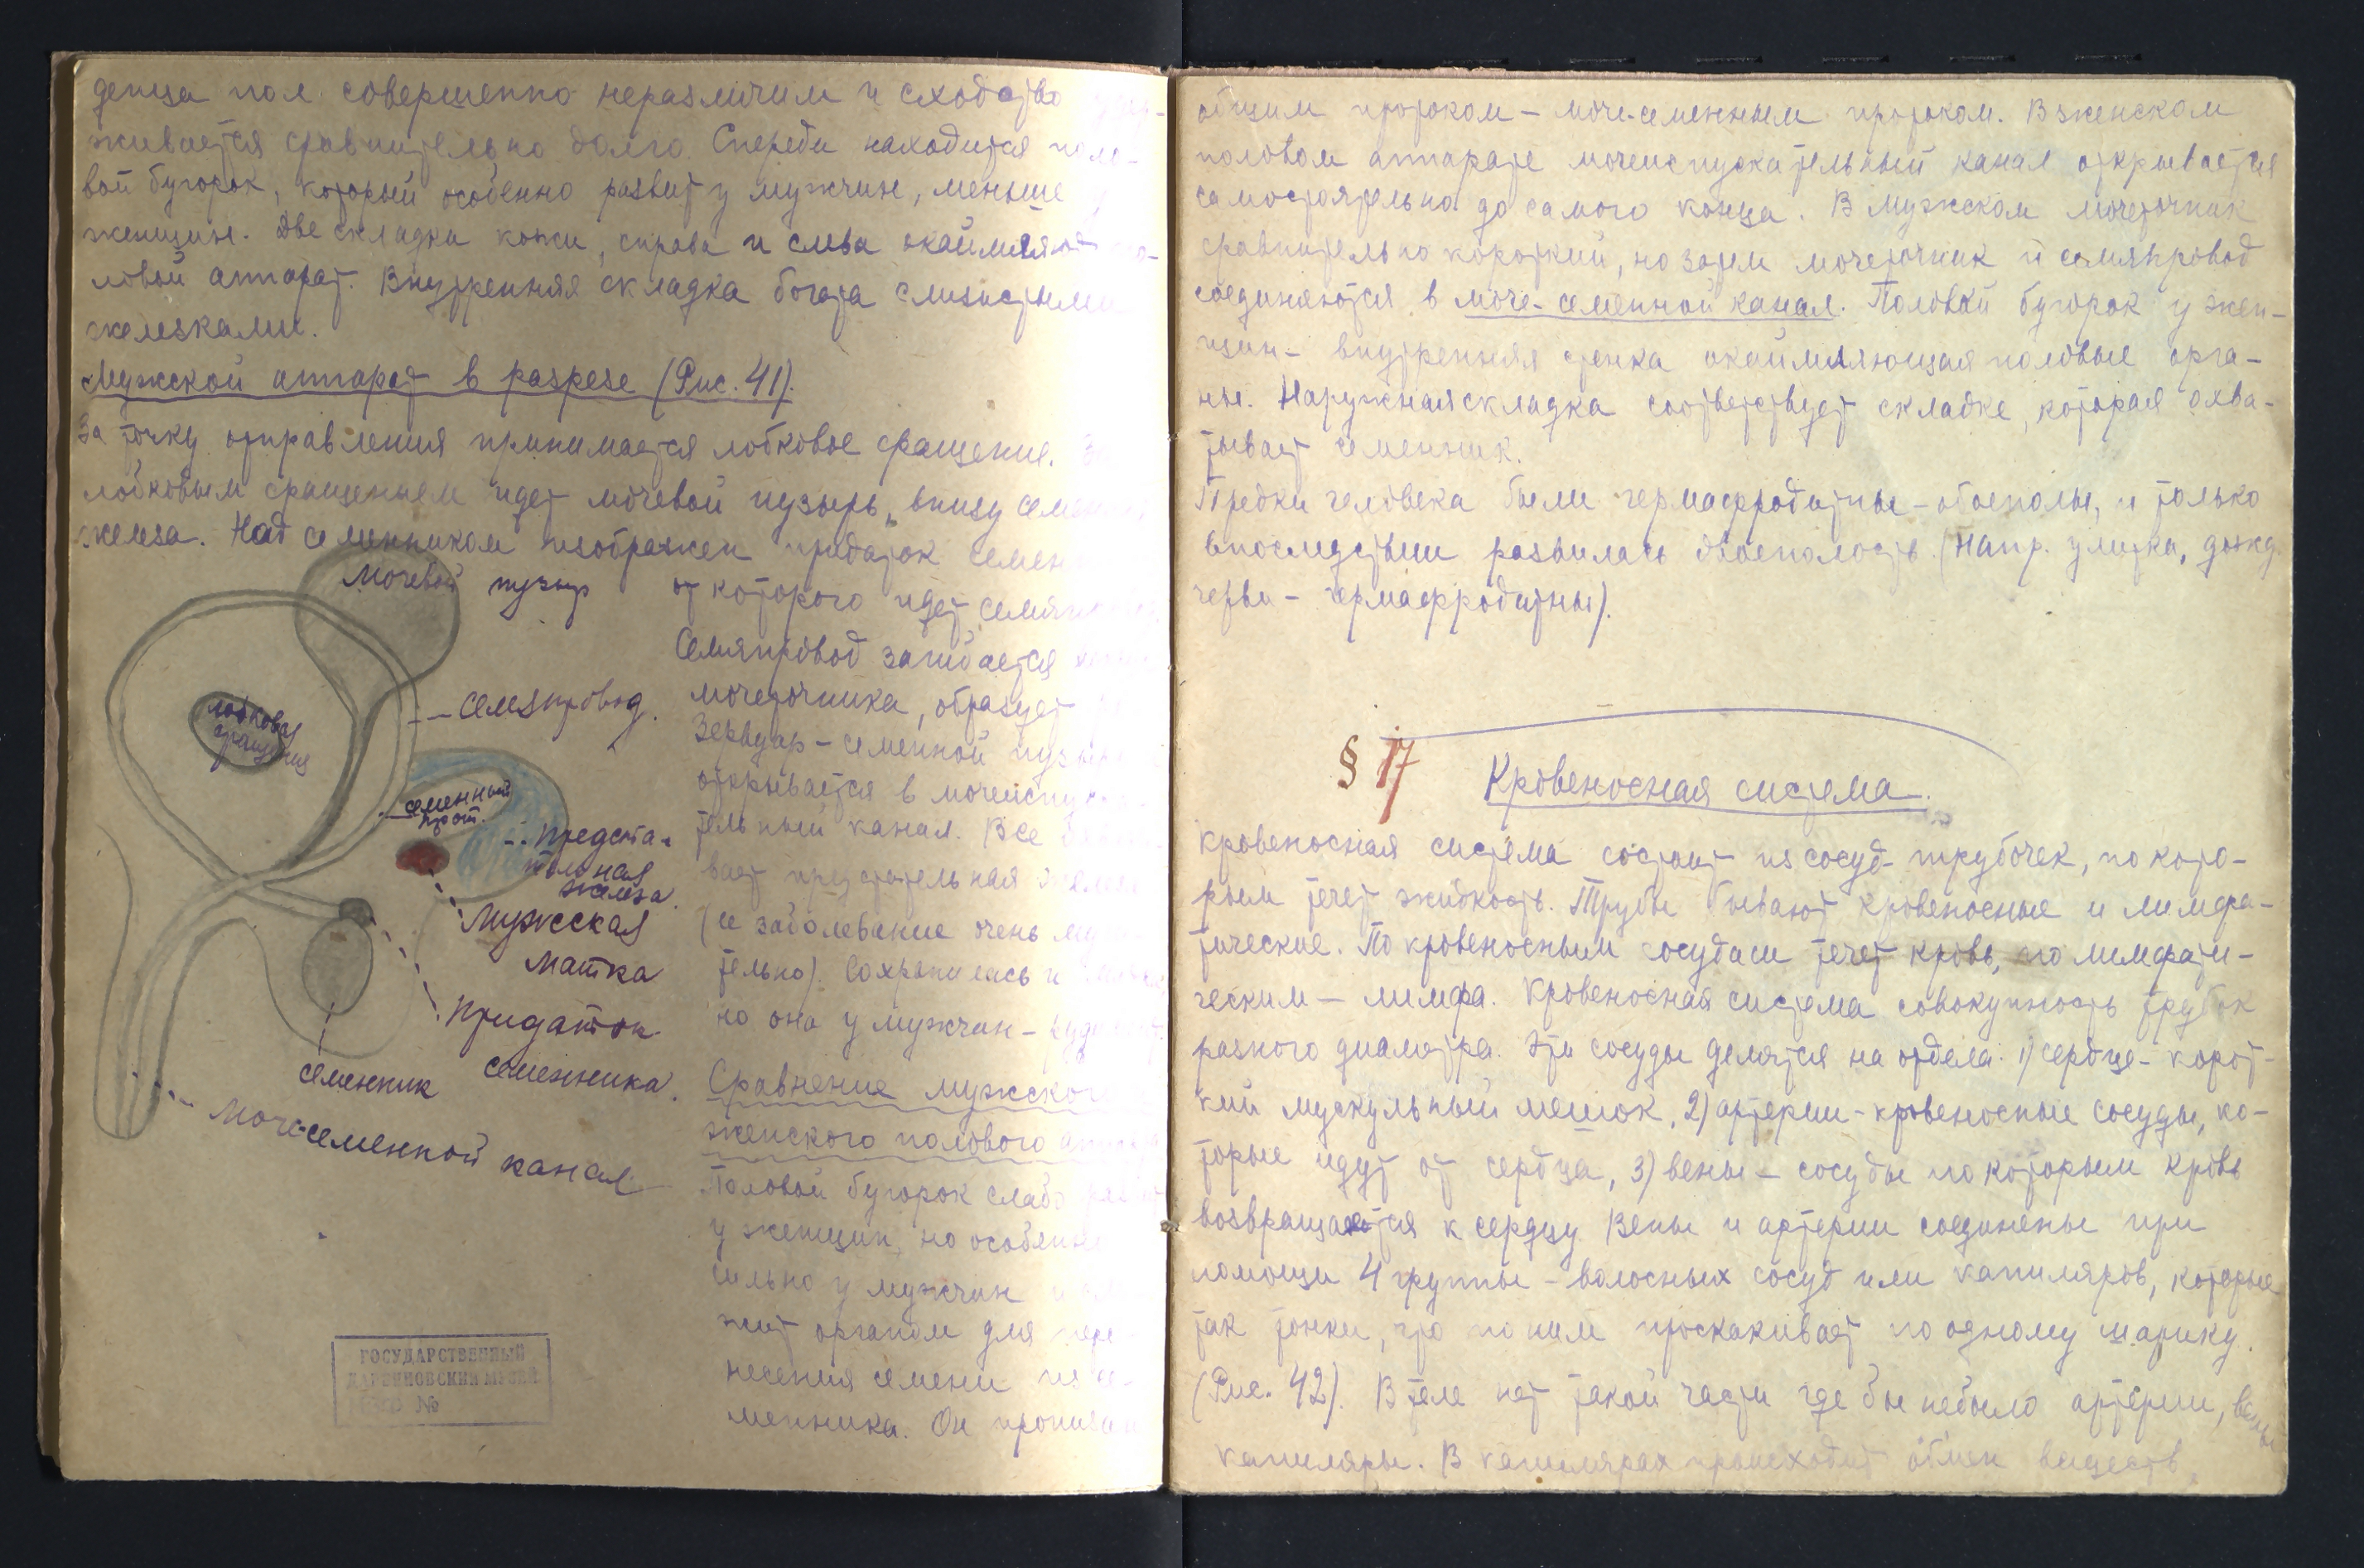 денца пол совершенно неразличим и сходство
живается сравнительно долго. Спереди находится поло-
вой бугорок, который особенно развит у мужчин, меньше у
женщин. Две складки кожи, справа и слева окаймляют по-
ловой аппарат. Внутренняя складка богата слизистыми
железками.
Мужской аппарат в разрезе (Рис. 41).
За точку отправления принимается лобковое сращение. За
лобковым сращением идет мочевой пузырь, внизу
железа. Над семенником изображен придаток
от которого идет
Семяпровод загибается
мочеточника, образует
зервуар – семенной
открывается в мочеиспуска-
тельный канал. Все
вает предстательная железа
(ее заболевание очень
тельно). Сохранилась и
но она у мужчин –
Сравнение мужского
женского полового
Половой бугорок слабо
у женщин, но особенно
сильно у мужчин и
жит органом для пере-
несения семени из се-
менника. Он пронизан
мочевой пузыр
лобковая сращения
семяпровод.
семенный прот.
предста-
тельная
железа.
Мужская
матка
Придаток
семенника.
семенник
Моче-семенной канал
ГОСУДАРСТВЕННЫЙ
ДАРВИНОВСКИЙ МУЗЕЙ
№
общим протоком – моче-семенным протоком. В женском
половом аппарате мочеиспускательный канал открывается
самостоятельно до самого конца. В мужском мочеточник
сравнительно короткий, но затем мочеточник и семяпровод
соединяются в моче-семенной канал. Половой бугорок у жен-
щин – внутренняя стенка окаймляющая половые орга-
ны. Наружная складка соответствует складке, которая охва-
тывает семенник.
Предки человека были гермафродитны – обоеполы, и только
впоследствии развилась двоеполость (Напр. улитка, дожд.
черви – гермафродитны).
§ 17
Кровеносная система.
Кровеносная система состоит из сосуд-трубочек, по кото-
рым течет жидкость. Трубы бывают кровеносные и лимфа-
тические. По кровеносным сосудам течет кровь, по лимфати-
ческим – лимфа. Кровеносная система совокупность трубок
разного диаметра. Эти сосуды делятся на отдела: 1) сердце – корот-
кий мускульный мешок, 2) артерии – кровеносные сосуды, ко-
торые идут от сердца, 3) вены – сосуды по которым кровь
возвращается к сердцу. Вены и артерии соединены при
помощи 4 группы – волосных сосуд или капиляров, которые
так тонки, что по ним проскакивает по одному шарику.
(Рис. 42). В теле нет такой части где бы небыло артерии, вены
капиляры. В капилярах происходит обмен веществ.